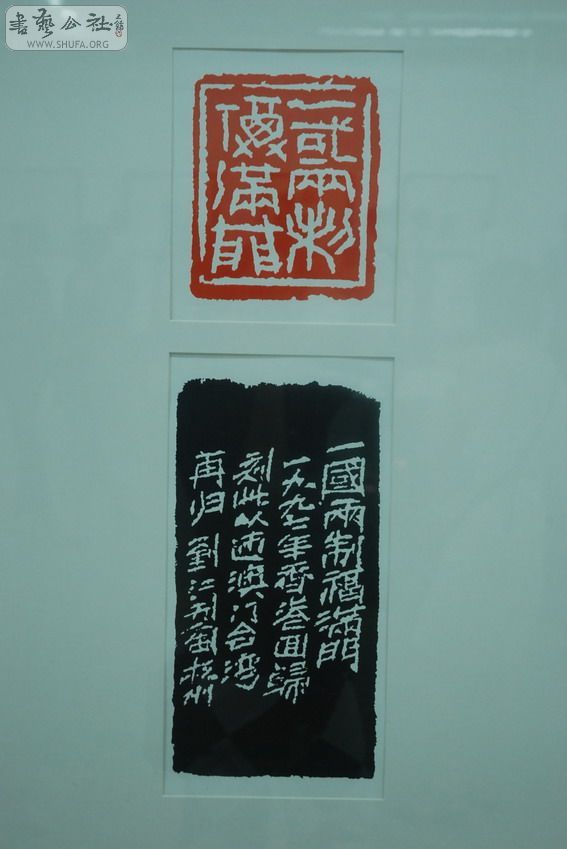 書藝公社
WWW.SHUFA.ORG
一或兩制
福滿門
一國兩制福滿門
一九九七年香港回歸
刻此以迎澳门台湾
再归 劉江刊寓杭州